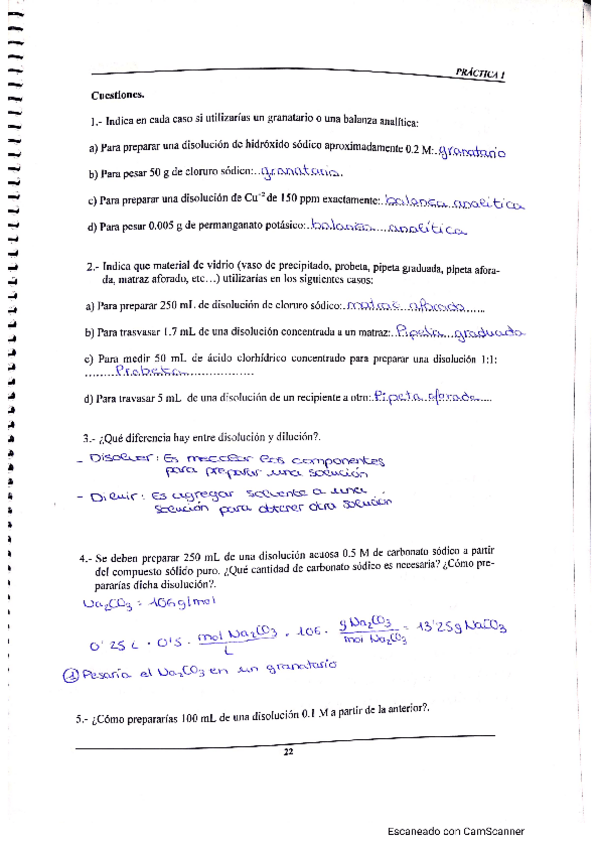 PRÁCTICA 1
Cuestiones.
1.- Indica en cada caso si utilizarías un granatario o una balanza analítica:
a) Para preparar una disolución de hidróxido sódico aproximadamente 0.2 M:..granatario
b) Para pesar 50 g de cloruro sódico:..granatario..
c) Para preparar una disolución de Cu+2 de 150 ppm exactamente:..balanza analítica
d) Para pesar 0.005 g de permanganato potásico:..balanza....analítica
2.- Indica que material de vidrio (vaso de precipitado, probeta, pipeta graduada, pipeta afora-
da, matraz aforado, etc...) utilizarías en los siguientes casos:
a) Para preparar 250 mL de disolución de cloruro sódico:..matraz aforado......
b) Para trasvasar 1.7 mL de una disolución concentrada a un matraz:..Pipeta graduada
c) Para medir 50 mL de ácido clorhídrico concentrado para preparar una disolución 1:1:
........Probeta....................
d) Para travasar 5 mL de una disolución de un recipiente a otro:..Pipeta aforada....
3.- ¿Qué diferencia hay entre disolución y dilución?.
- Disolver: Es mezclar los componentes
para preparar una solución
- Diluir: Es agregar solvente a una
solución para obtener otra solución
4.- Se deben preparar 250 mL de una disolución acuosa 0.5 M de carbonato sódico a partir
del compuesto sólido puro. ¿Qué cantidad de carbonato sódico es necesaria? ¿Cómo pre-
pararías dicha disolución?.
Na2CO3 = 106g/mol
0'25 L · 0'5 · mol Na2CO3 / L · 106 · g Na2CO3 / mol Na2CO3 = 13'25g NaCO3
① Pesaría el Na2CO3 en un granatario
5.- ¿Cómo prepararías 100 mL de una disolución 0.1 M a partir de la anterior?.
22
Escaneado con CamScanner